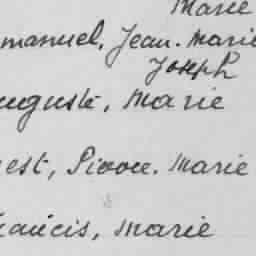 Marie
manuel, Jean. Marie
Joseph
uguste, Marie
est, Pierre. Marie
rancis, Marie